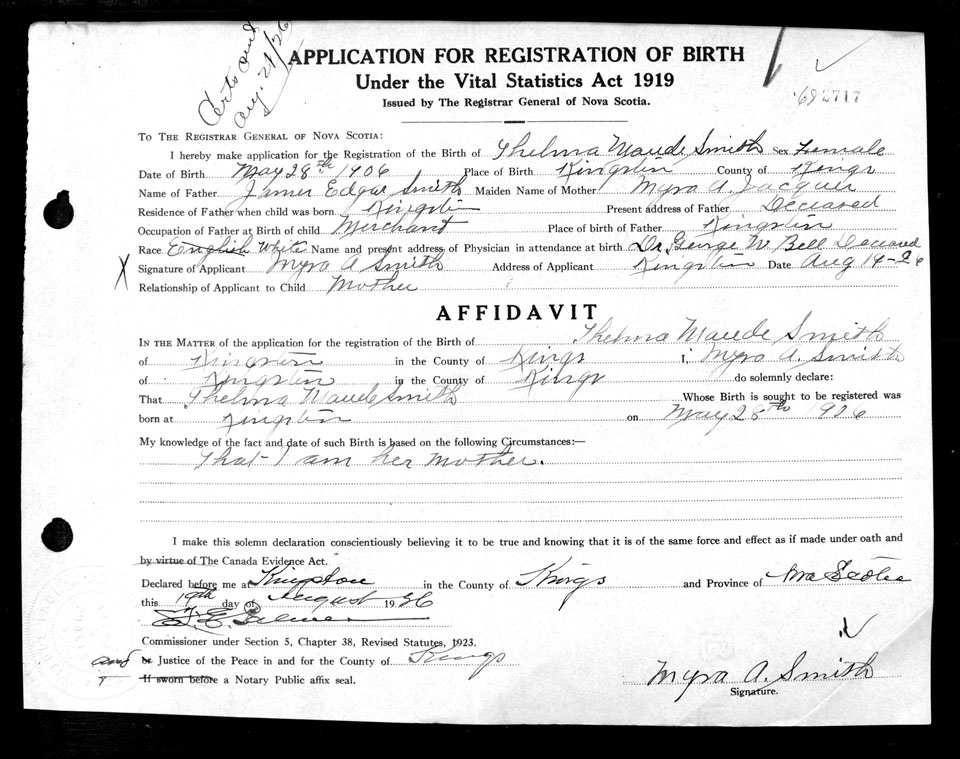 Certs sent
Aug. 21/26
APPLICATION FOR REGISTRATION OF BIRTH
Under the Vital Statistics Act 1919
Issued by The Registrar General of Nova Scotia.
692717
TO THE REGISTRAR GENERAL OF NOVA SCOTIA:
I hereby make application for the Registration of the Birth of Thelma Maude Smith Sex Female
Date of Birth May 28th 1906 Place of Birth Kingston County of Kings
Name of Father James Edgar Smith Maiden Name of Mother Myra A. Jacques
Residence of Father when child was born Kingston Present address of Father Deceased
Occupation of Father at Birth of child Merchant Place of birth of Father Kingston
Race English White Name and present address of Physician in attendance at birth Dr. George W Bell Deceased
X Signature of Applicant Myra A Smith Address of Applicant Kingston Date Aug 19-26
Relationship of Applicant to Child Mother
AFFIDAVIT
IN THE MATTER of the application for the registration of the Birth of Thelma Maude Smith
of Kingston in the County of Kings I, Myra A. Smith
of Kingston in the County of Kings do solemnly declare:
That Thelma Maude Smith Whose Birth is sought to be registered was
born at Kingston on May 28th 1906
My knowledge of the fact and date of such Birth is based on the following Circumstances:—
That I am her Mother.
I make this solemn declaration conscientiously believing it to be true and knowing that it is of the same force and effect as if made under oath and
by virtue of The Canada Evidence Act.
Declared before me at Kingston in the County of Kings and Province of Nova Scotia
this 19th day of August 1926
Commissioner under Section 5, Chapter 38, Revised Statutes, 1923.
and or Justice of the Peace in and for the County of Kings
If sworn before a Notary Public affix seal.
Myra A. Smith
Signature.